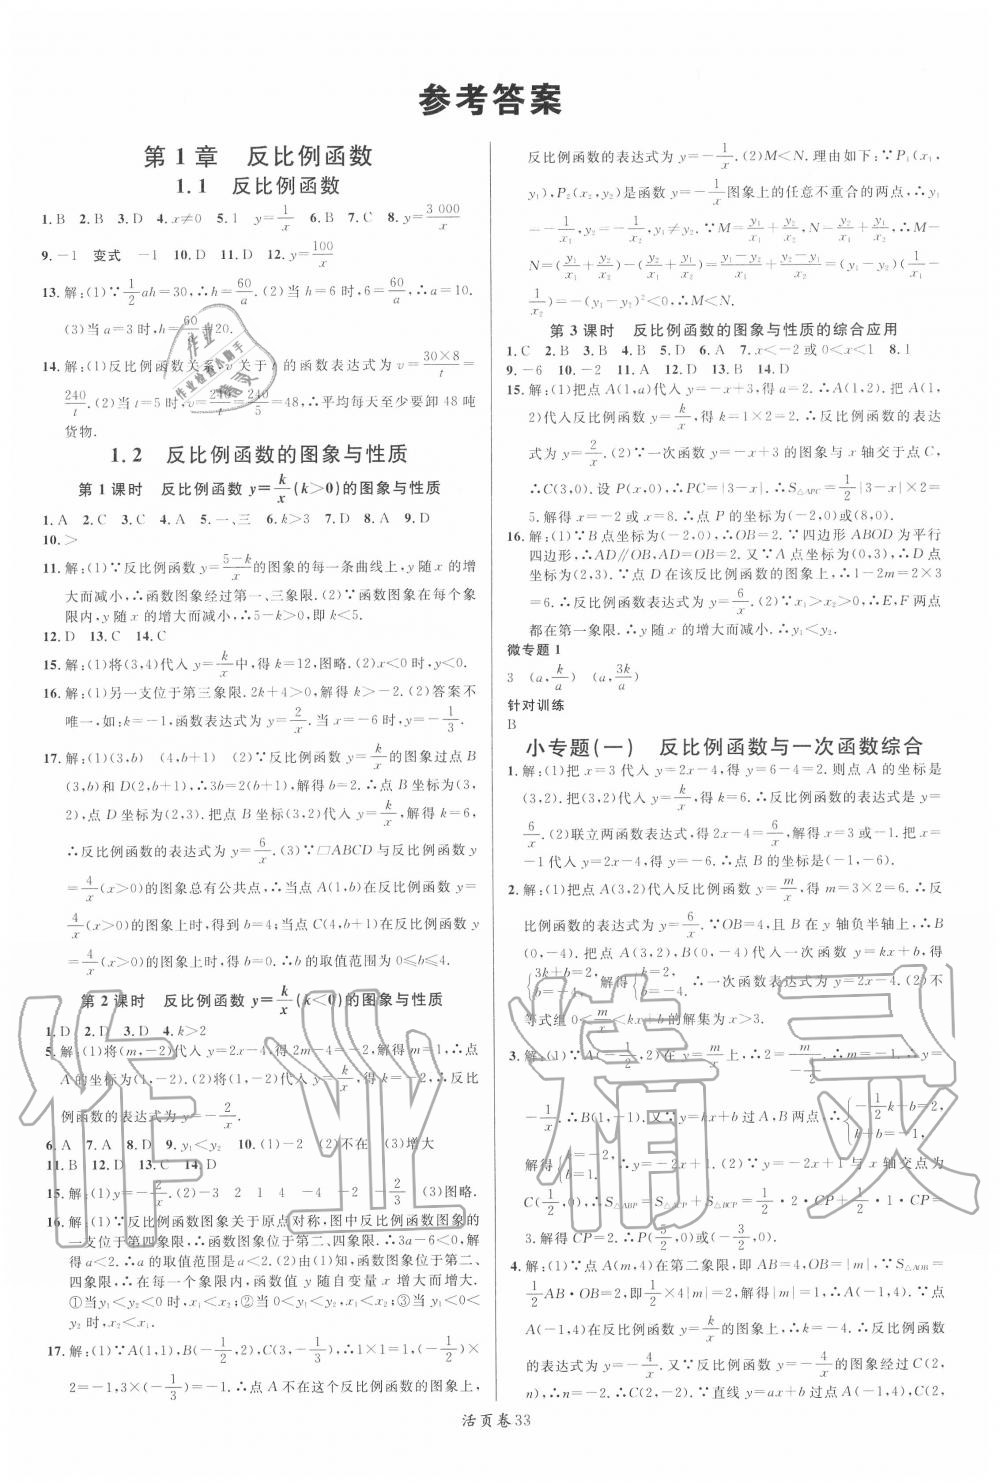 参考答案
第1章 反比例函数
1.1 反比例函数
1.B 2.B 3.D 4.x≠0 5.1 y=1/x 6.B 7.C 8.y=3 000/x
9.-1 变式 -1 10.D 11.D 12.y=100/x
13.解:(1)∵1/2 ah=30,∴h=60/a.(2)当h=6时,6=60/a,∴a=10.
(3)当a=3时,h=60/3=20.
14.解:(1)反比例函数关系,v关于t的函数表达式为v=30×8/t=
240/t.(2)当t=5时,v=240/t=240/5=48,∴平均每天至少要卸48吨
货物.
1.2 反比例函数的图象与性质
第1课时 反比例函数y=k/x(k>0)的图象与性质
1.A 2.C 3.C 4.A 5.一、三 6.k>3 7.D 8.A 9.D
10.>
11.解:(1)∵反比例函数y=5-k/x的图象的每一条曲线上,y随x的增
大而减小,∴函数图象经过第一、三象限.(2)∵函数图象在每个象
限内,y随x的增大而减小,∴5-k>0,即k<5.
12.D 13.C 14.C
15.解:(1)将(3,4)代入y=k/x中,得k=12,图略.(2)x<0时,y<0.
16.解:(1)另一支位于第三象限.2k+4>0,解得k>-2.(2)答案不
唯一,如:k=-1,函数表达式为y=2/x.当x=-6时,y=-1/3.
17.解:(1)(3,b) (4,b+1) (2)∵反比例函数y=k/x的图象过点B
(3,b)和D(2,b+1),∴3b=2(b+1),解得b=2.∴点B坐标为(3,
2),点D坐标为(2,3).把点B坐标(3,2)代入y=k/x,解得k=6,
∴反比例函数的表达式为y=6/x.(3)∵▱ABCD与反比例函数y
=4/x(x>0)的图象总有公共点,∴当点A(1,b)在反比例函数y=
4/x(x>0)的图象上时,得到b=4;当点C(4,b+1)在反比例函数y
=4/x(x>0)的图象上时,得b=0.∴b的取值范围为0≤b≤4.
第2课时 反比例函数y=k/x(k<0)的图象与性质
1.D 2.D 3.D 4.k>2
5.解:(1)将(m,-2)代入y=2x-4,得2m-4=-2,解得m=1,∴点
A的坐标为(1,-2).(2)将(1,-2)代入y=k/x,得k=-2,∴反比
例函数的表达式为y=-2/x.
6.A 7.A 8.D 9.y₁<y₂ 10.(1)-2 (2)不在 (3)增大
11.B 12.D 13.C 14.D
15.解:(1)y=-2/x.(2)-3 2 1 4 -4 -2 2/3 (3)图略.
16.解:(1)∵反比例函数图象关于原点对称,图中反比例函数图象的
一支位于第四象限,∴函数图象位于第二、四象限.∴3a-6<0,解
得a<2.∴a的取值范围是a<2.(2)由(1)知,函数图象位于第二、
四象限,∴在每一象限内,函数值y随自变量x增大而增大.
①当y₁<y₂<0时,x₁<x₂;②当0<y₁<y₂时,x₁<x₂;③当y₁<0<
y₂时,x₂<x₁.
17.解:(1)∵A(1,1),B(-1/2,2),C(3,-1/3),∴1×1=1,(-1/2)×
2=-1,3×(-1/3)=-1.∴点A不在这个反比例函数的图象上,
反比例函数的表达式为y=-1/x.(2)M<N.理由如下:∵P₁(x₁,
y₁),P₂(x₂,y₂)是函数y=-1/x图象上的任意不重合的两点,∴y₁
=-1/x₁,y₂=-1/x₂,y₁≠y₂.∵M=y₁/x₁+y₂/x₂,N=y₂/x₁+y₁/x₂,∴M-
N=(y₁/x₁+y₂/x₂)-(y₂/x₁+y₁/x₂)=y₁-y₂/x₁+y₂-y₁/x₂=(y₁-y₂)(1/x₁-
1/x₂)=-(y₁-y₂)²<0,∴M<N.
第3课时 反比例函数的图象与性质的综合应用
1.C 2.B 3.B 4.D 5.D 6.A 7.x<-2或0<x<1 8.1
9.-6 10.-2 11.A 12.D 13.B 14.D
15.解:(1)把点A(1,a)代入y=-x+3,得a=2.∴A(1,2).把A(1,
2)代入反比例函数y=k/x,得k=1×2=2.∴反比例函数的表达
式为y=2/x.(2)∵一次函数y=-x+3的图象与x轴交于点C,
∴C(3,0).设P(x,0),∴PC=|3-x|.∴S△APC=1/2|3-x|×2=
5.解得x=-2或x=8.∴点P的坐标为(-2,0)或(8,0).
16.解:(1)∵B点坐标为(-2,0),∴OB=2.∵四边形ABOD为平行
四边形,∴AD∥OB,AD=OB=2.又∵A点坐标为(0,3),∴D点
坐标为(2,3).∵点D在该反比例函数的图象上,∴1-2m=2×3
=6.∴反比例函数的表达式为y=6/x.(2)∵x₁>x₂>0,∴E,F两点
都在第一象限.∴y随x的增大而减小.∴y₁<y₂.
微专题1
3 (a,k/a) (a,3k/a)
针对训练
B
小专题(一) 反比例函数与一次函数综合
1.解:(1)把x=3代入y=2x-4,得y=6-4=2.则点A的坐标是
(3,2).把(3,2)代入y=k/x,得k=6.∴反比例函数的表达式是y=
6/x.(2)联立两函数表达式,得2x-4=6/x,解得x=3或-1.把x=
-1代入y=2x-4,得y=-6.∴点B的坐标是(-1,-6).
2.解:(1)把点A(3,2)代入反比例函数y=m/x,得m=3×2=6.∴反
比例函数的表达式为y=6/x.∵OB=4,且B在y轴负半轴上,∴B
(0,-4).把点A(3,2),B(0,-4)代入一次函数y=kx+b,得
{3k+b=2, b=-4.解得{k=2, b=-4.∴一次函数表达式为y=2x-4.(2)不
等式组0<m/x<kx+b的解集为x>3.
3.解:(1)∵A(-1/2,2)在y=m/x上,∴2=m/(-1/2).∴m=-1.∴y=
-1/x.∴B(1,-1).又∵y=kx+b过A,B两点,∴{-1/2k+b=2, k+b=-1.
解得{k=-2, b=1.∴y=-2x+1.(2)∵y=-2x+1与x轴交点为
C(1/2,0),∴S△ABP=S△ACP+S△BCP=1/2·2·CP+1/2·1·CP=
3.解得CP=2.∴P(5/2,0)或(-3/2,0).
4.解:(1)∵点A(m,4)在第二象限,即AB=4,OB=|m|,∵S△AOB=
1/2AB·OB=2,即1/2×4|m|=2,解得|m|=1.∴m=-1.∴点
A(-1,4).∵点A(-1,4)在反比例函数的图象上,∴反比例函数
的表达式为y=-4/x.又∵反比例函数y=-4/x的图象经过C(2,
n),∴n=-2.∵直线y=ax+b过点A(-1,4),C(2,
活页卷33